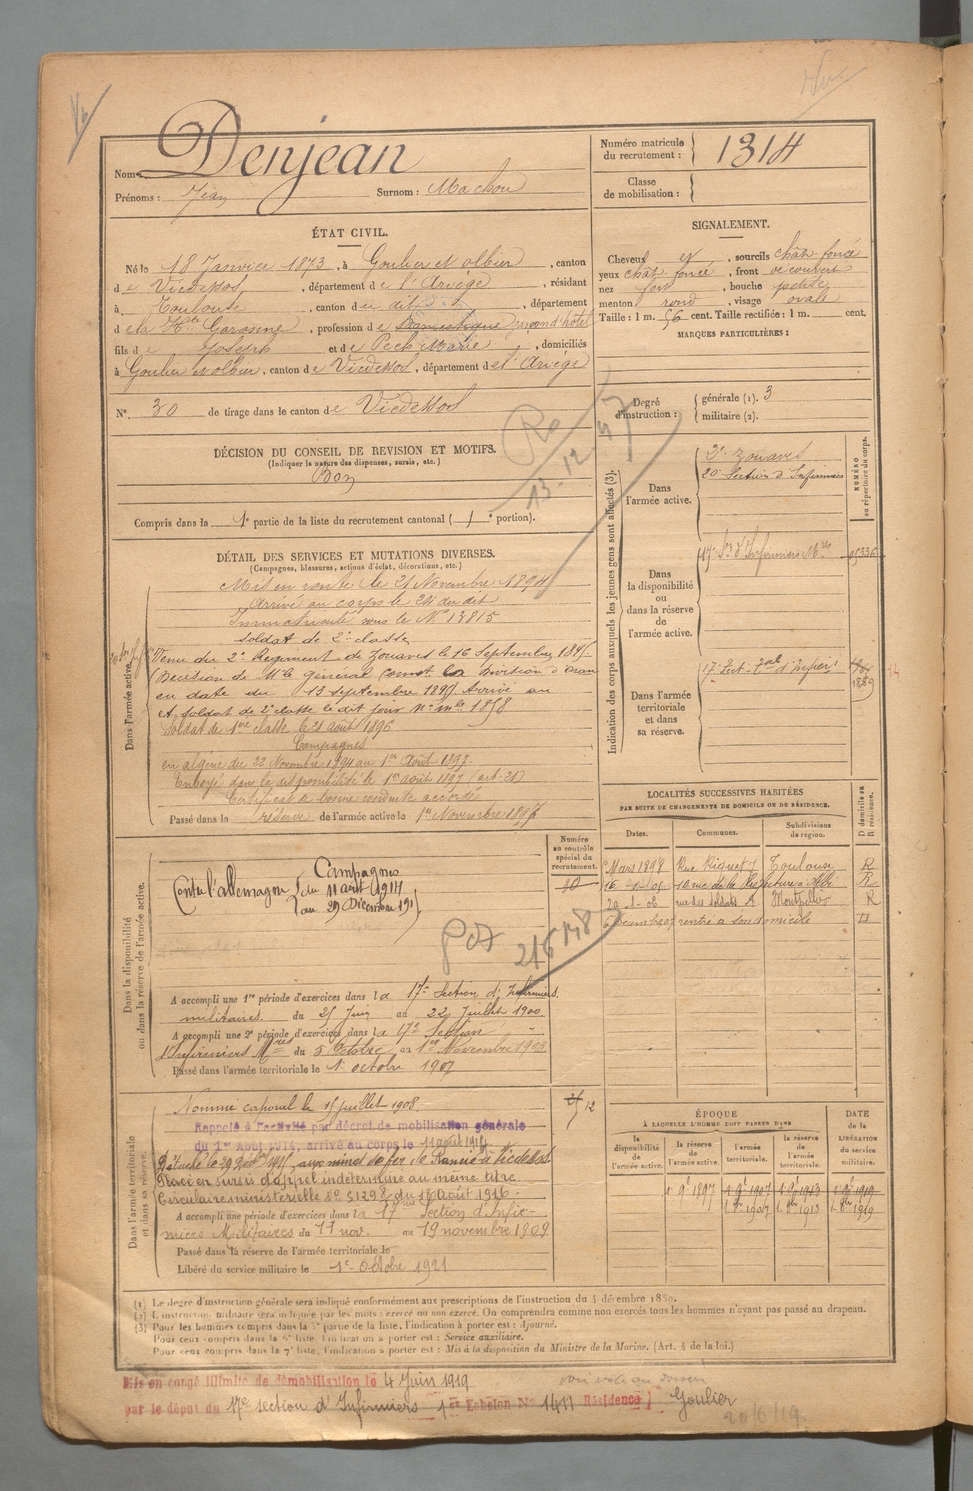 Nom: Denjean
Prénoms: Jean Surnom: Machou
Numéro matricule du recrutement: 1314
Classe de mobilisation:
ÉTAT CIVIL.
Né le 18 Janvier 1873, à Goulier et Olbier, canton
de Vicdessos, département de l'Ariège, résidant
à Toulouse, canton du dit, département
de la Hte Garonne, profession de domestique garçon d'hôtel
fils de Joseph et de Pech Marie, domiciliés
à Goulier et Olbier, canton de Vicdessos, département de l'Ariège
N° 30 de tirage dans le canton de Vicdessos
SIGNALEMENT.
Cheveux et, sourcils chât. foncé
yeux chât foncé, front découvert
nez fort, bouche petite
menton rond, visage ovale
Taille: 1 m. 56 cent. Taille rectifiée: 1 m. cent.
MARQUES PARTICULIÈRES:
Degré d'instruction: générale (1). 3
militaire (2).
DÉCISION DU CONSEIL DE REVISION ET MOTIFS.
(Indiquer la nature des dispenses, sursis, etc.)
Bon
Compris dans la 1e partie de la liste du recrutement cantonal ( 1e portion).
13-12
DÉTAIL DES SERVICES ET MUTATIONS DIVERSES.
(Campagnes, blessures, actions d'éclat, décorations, etc.)
Dans l'armée active.
Mis en route le 21 Novembre 1894
Arrivé au corps le 24 du dit
Immatriculé sous le No 13815
soldat de 2e classe
Venu du 2e Régiment de Zouaves le 16 Septembre 1895
(Décision de Mr le général Comt la Division d'Oran
en date du 13 septembre 1895 Arrivé au
et soldat de 2e classe le dit jour no mle 1858
Soldat de 1ère classe le 21 août 1896
Campagnes
en algérie du 22 Novembre 1894 au 1er Août 1897.
Envoyé dans la disponibilité le 1er août 1897 (art. 21)
Certificat de bonne conduite accordé
Passé dans la réserve de l'armée active le 1er Novembre 1897
Indication des corps auxquels les jeunes gens sont affectés (3).
NUMÉRO au répertoire du corps.
Dans l'armée active.
2e Zouaves
20e Section d'Infirmiers
Dans la disponibilité ou dans la réserve de l'armée active.
17e Son d'Infirmiers Mres
Dans l'armée territoriale et dans sa réserve.
17e Sect. Tale d'Infiers
1859
14
LOCALITÉS SUCCESSIVES HABITÉES
PAR SUITE DE CHANGEMENTS DE DOMICILE OU DE RÉSIDENCE.
Dates. Communes. Subdivisions de région. D domicile ou R résidence.
Mars 1898 Rue Riquet 7 Toulouse R
16 10 rue de la Préfecture à Albi R
29-1-06 rue des Soldats Montpellier R
rentré à son domicile
Dans la disponibilité ou dans la réserve de l'armée active.
Numéro au contrôle spécial du recrutement.
10
Campagnes
Contre l'allemagne du 11 août 1914
au 29 Décembre 191
216 148
A accompli une 1re période d'exercices dans la 17e Section d'Infirmiers
militaires. du 25 Juin au 22 Juillet 1900
A accompli une 2e période d'exercices dans la 17e Section
d'Infirmiers Mres du 5 Octobre au 1er Novembre 1903
Passé dans l'armée territoriale le 1er octobre 1907
Dans l'armée territoriale et dans sa réserve.
12
Nommé caporal le 15 juillet 1908.
Rappelé à l'activité par décret de mobilisation générale
du 1er Août 1914, arrivé au corps le 11 août 1914
Détaché le 29 aux mines de fer de Rancié à Vicdessos.
Placé en sursis d'appel indéterminé au même titre.
Circulaire ministérielle No 51298 du 18 août 1916
A accompli une période d'exercices dans la 17me Section d'Infir-
miers Militaires du 11 nov. au 19 novembre 1909
Passé dans la réserve de l'armée territoriale le
Libéré du service militaire le 1er Octobre 1921
ÉPOQUE
À LAQUELLE L'HOMME DOIT PASSER DANS
DATE de la LIBÉRATION du service militaire.
la disponibilité de l'armée active. la réserve de l'armée active. l'armée territoriale. la réserve de l'armée territoriale.
1. 9e 1897 1. 9e 1907 1. 9e 1913 1. 9e 1919
1. 8bre 1907 1. 8bre 1913 1. 8bre 1919
(1) Le degré d'instruction générale sera indiqué conformément aux prescriptions de l'instruction du 4 décembre 1889.
(2) L'instruction militaire sera indiquée par les mots: exercé ou non exercé. On comprendra comme non exercés tous les hommes n'ayant pas passé au drapeau.
(3) Pour les hommes compris dans la partie de la liste, l'indication à porter est: Ajourné.
Pour ceux compris dans la liste, l'indication à porter est: Service auxiliaire.
Pour ceux compris dans la 7e liste, l'indication à porter est: Mis à la disposition du Ministre de la Marine. (Art. 4 de la loi.)
Mis en congé illimité de démobilisation le 4 Juin 1919
par le dépôt du 17e section d'Infirmiers 1er Echelon No 1411 Résidence Goulier
20/6/19